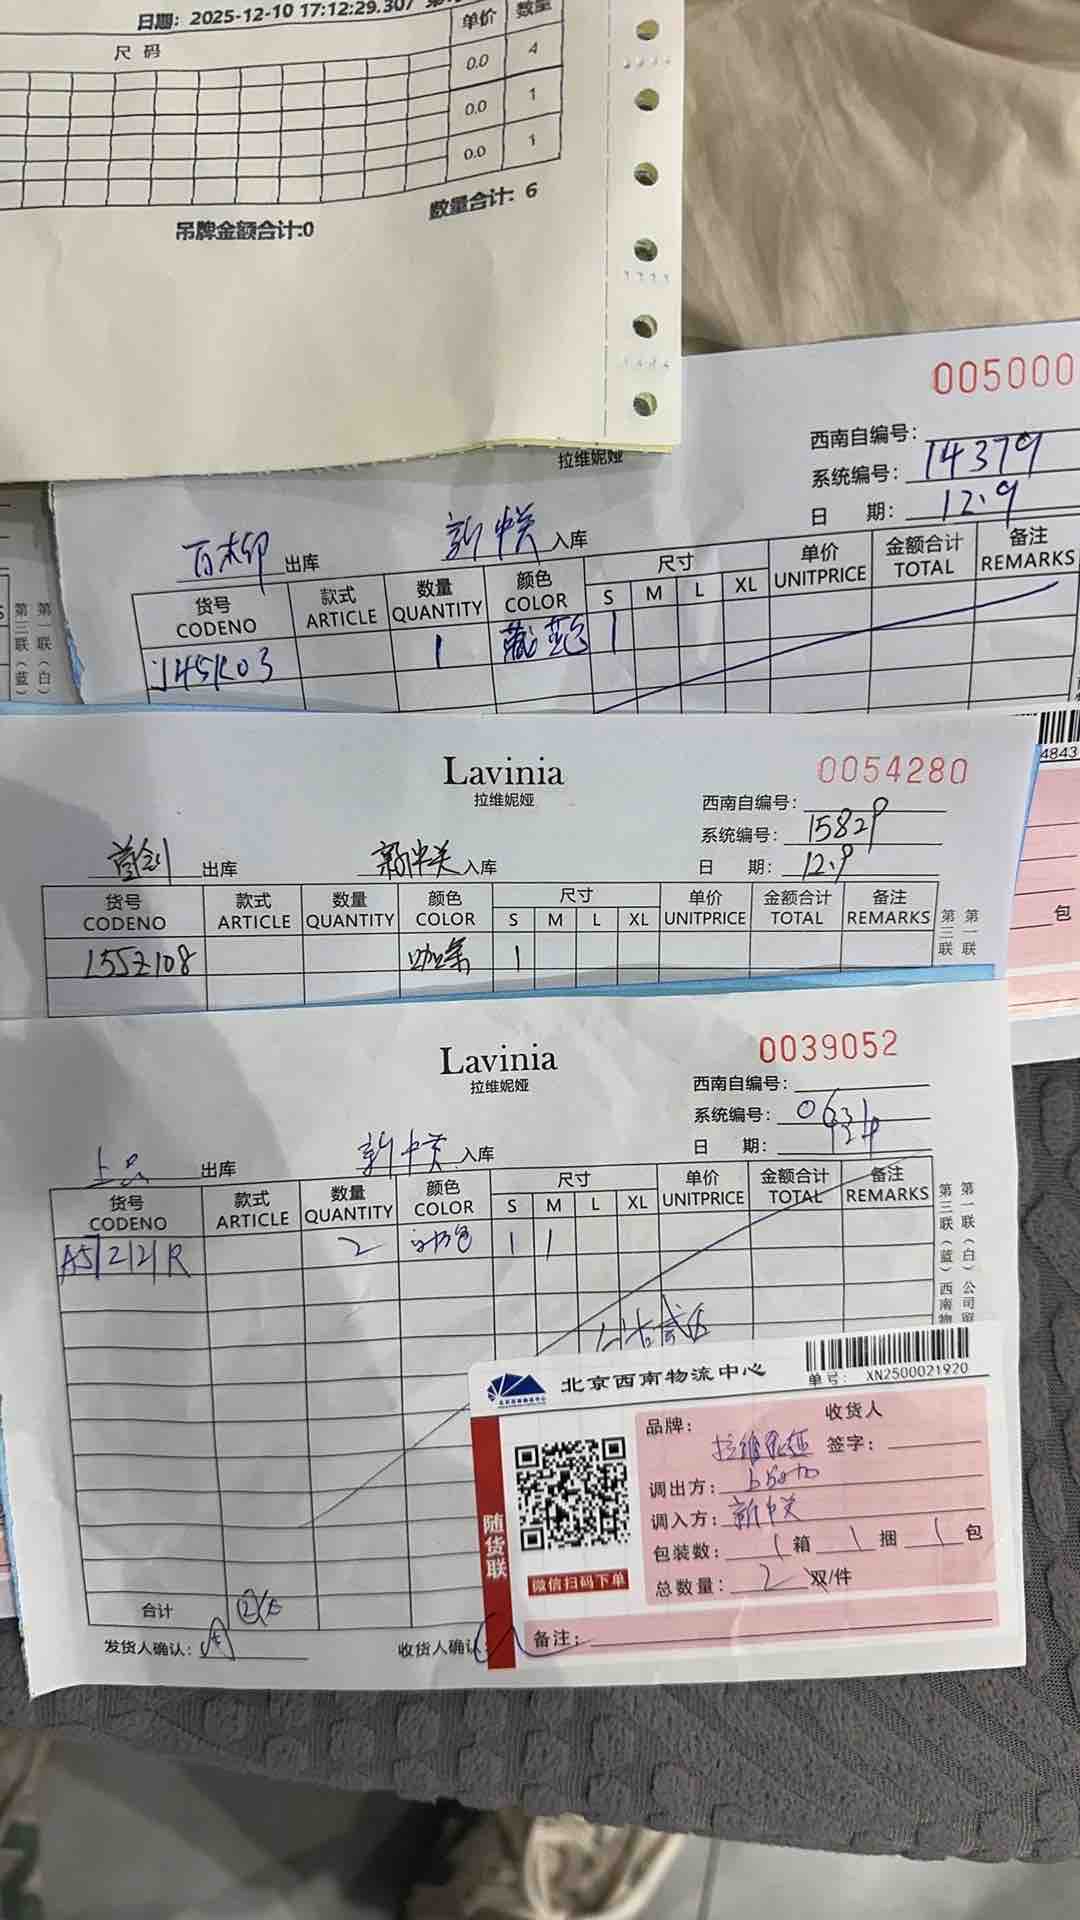 日期: 2025-12-10 17:12:29.307
尺 码 单价 数量
0.0 4
0.0 1
0.0 1
吊牌金额合计:0 数量合计: 6
005000
拉维妮娅
西南自编号:
系统编号: 14379
日 期: 12.9
出库 新中关 入库
货号 CODENO 款式 ARTICLE 数量 QUANTITY 颜色 COLOR 尺寸 S M L XL 单价 UNITPRICE 金额合计 TOTAL 备注 REMARKS
J45K03 1 藏蓝 1
第三联(蓝) 第一联(白)
4843
包
Lavinia
拉维妮娅
0054280
西南自编号:
系统编号: 15829
日 期: 12.9
出库 新中关 入库
货号 CODENO 款式 ARTICLE 数量 QUANTITY 颜色 COLOR 尺寸 S M L XL 单价 UNITPRICE 金额合计 TOTAL 备注 REMARKS
155Z108 1
第三联 第一联
Lavinia
拉维妮娅
0039052
西南自编号:
系统编号:
日 期:
上品 出库 新中关 入库
货号 CODENO 款式 ARTICLE 数量 QUANTITY 颜色 COLOR 尺寸 S M L XL 单价 UNITPRICE 金额合计 TOTAL 备注 REMARKS
A512121R 2 1 1
第三联(蓝)西南物 第一联(白)公司留
合计 ②件
发货人确认: 收货人确认:
北京西南物流中心
单号: XN2500021920
随货联
微信扫码下单
品牌: 拉维妮娅 收货人签字:
调出方:
调入方: 新中关
包装数: 1 箱 1 捆 1 包
总数量: 2 双/件
备注: